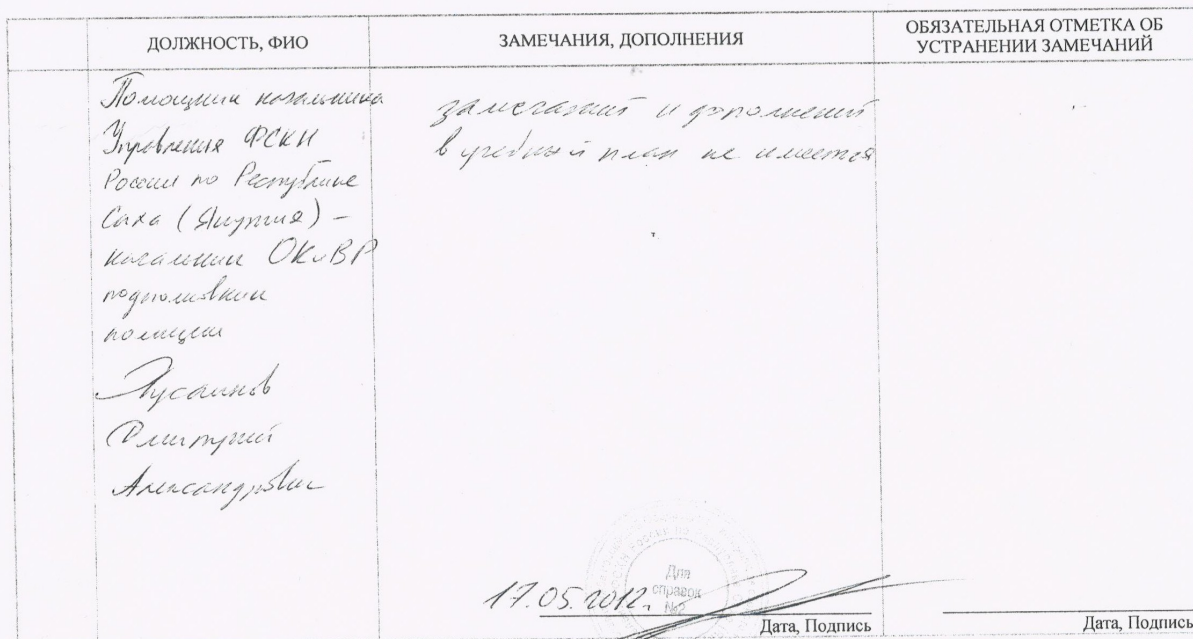 ДОЛЖНОСТЬ, ФИО
ЗАМЕЧАНИЯ, ДОПОЛНЕНИЯ
ОБЯЗАТЕЛЬНАЯ ОТМЕТКА ОБ
УСТРАНЕНИИ ЗАМЕЧАНИЙ
Помощник начальника
Управления ФСКН
России по Республике
Саха (Якутия) –
начальник ОКиВР
подполковник
полиции
Дмитрий
Александрович
замечаний и дополнений
в учебный план не имеется
Для
справок
№2
17.05.2012.
Дата, Подпись
Дата, Подпись